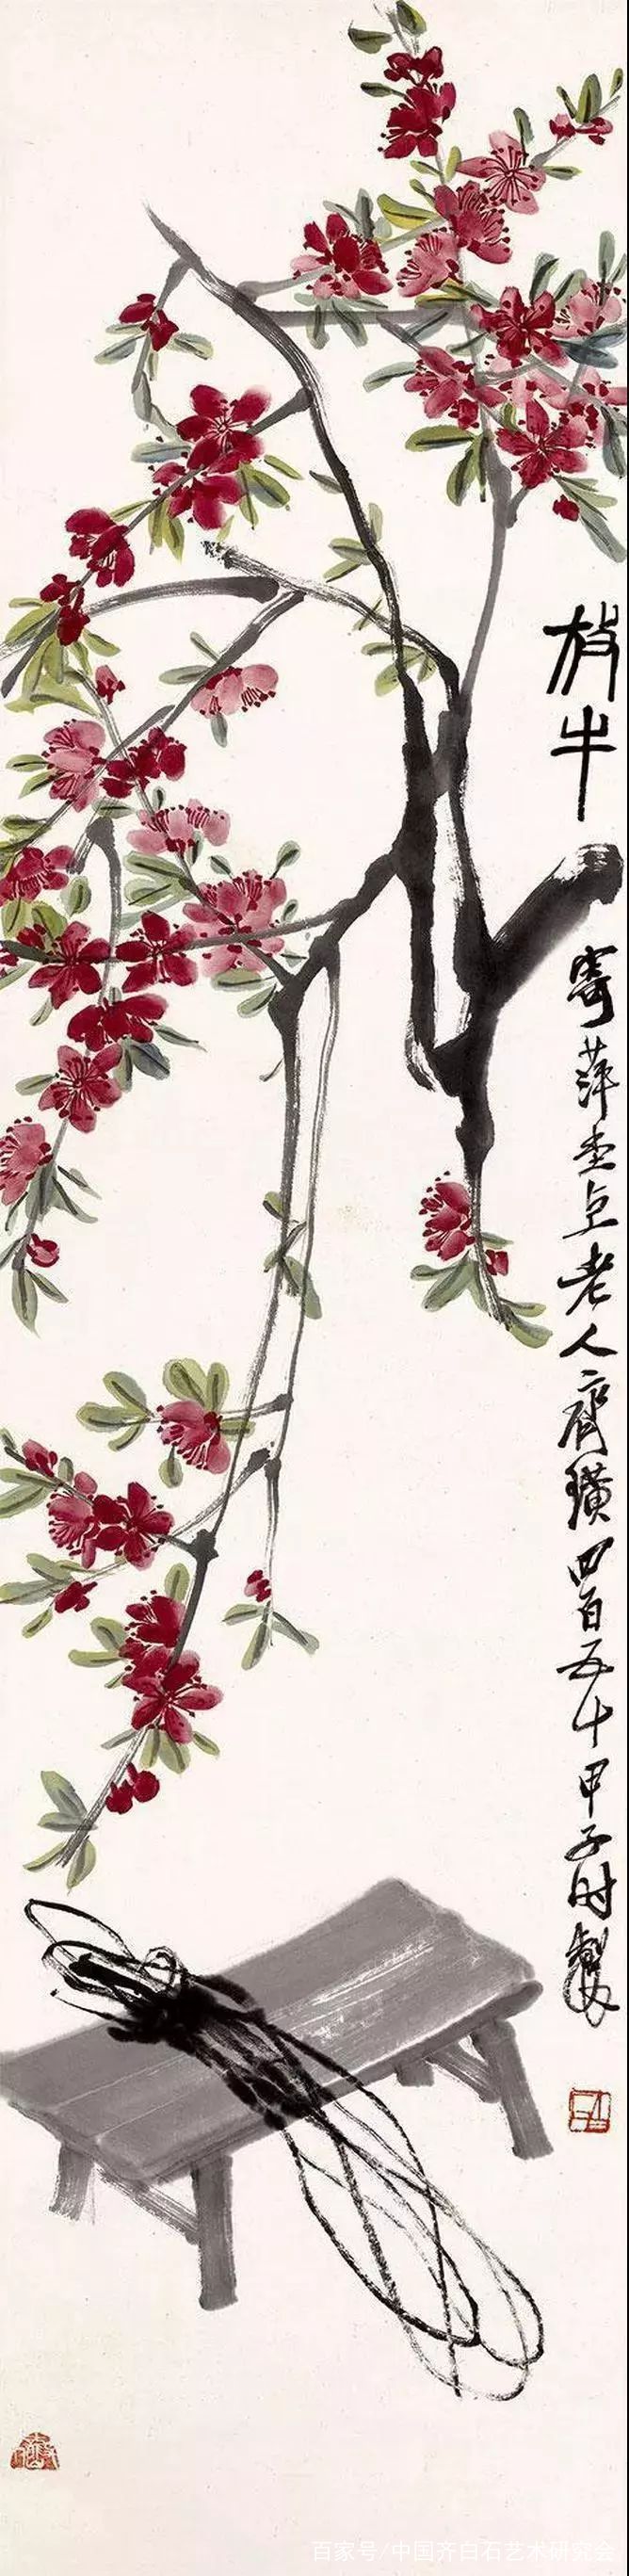 放牛
寄萍堂上老人齊璜四百五十甲子时製
百家号/中国齐白石艺术研究会